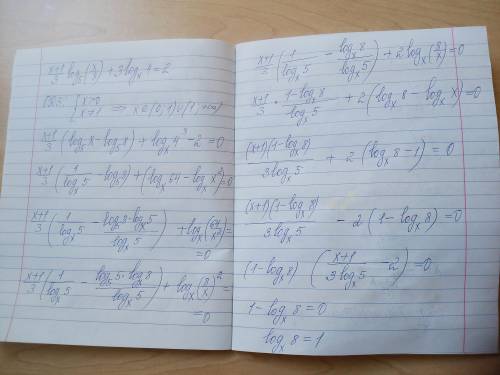 x+1/3 log₅(x/8) + 3log_x 4 = 2
ОДЗ: { x>0 x≠1 ⇒ x∈(0;1)∪(1;+∞)
x+1/3 (log₅x - log₅8) + log_x 4³ - 2 = 0
x+1/3 (1/log_x 5 - log₅8) + (log_x 64 - log_x x²) = 0
x+1/3 (1/log_x 5 - log₅8·log_x 5/log_x 5) + log_x(64/x²) =
= 0
x+1/3 (1/log_x 5 - log_x 5·log₅8/log_x 5) + log_x(8/x)² =
= 0
x+1/3 (1/log_x 5 - log_x 8/log_x 5) + 2log_x(8/x) = 0
x+1/3 · 1-log_x 8/log_x 5 + 2(log_x 8 - log_x x) = 0
(x+1)(1-log_x 8)/3log_x 5 + 2(log_x 8 - 1) = 0
(x+1)(1-log_x 8)/3log_x 5 - 2(1-log_x 8) = 0
(1-log_x 8) (x+1/3log_x 5 - 2) = 0
1 - log_x 8 = 0
log_x 8 = 1